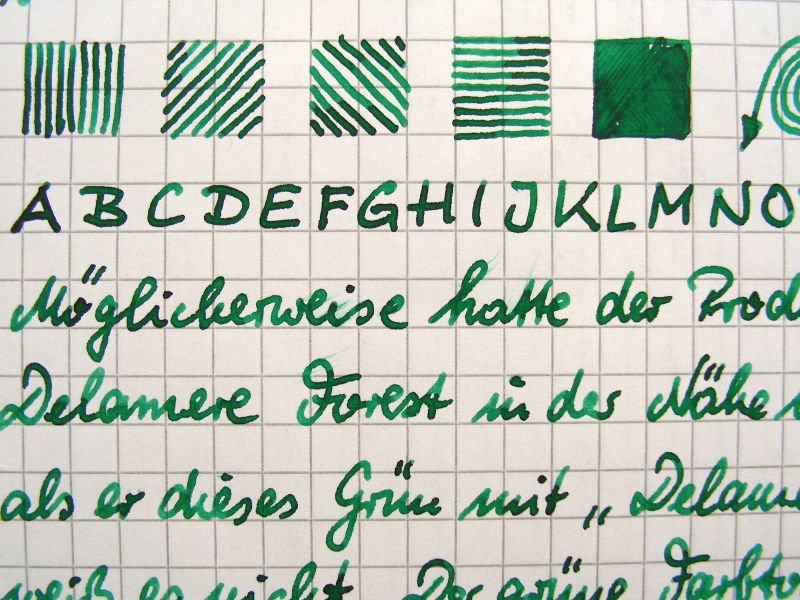 A B C D E F G H I J K L M N O
Möglicherweise hatte der Prod
Delamere Forest in der Nähe
als er dieses Grün mit „Delame
weiß es nicht. Der grüne Farbto